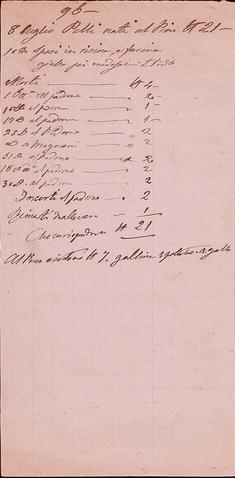 96-
8 Luglio Polli nati al Pino N 21-
10 d. Spesi in risina, e farina
gialla per medesimi £ 1:36
Morti N 4-
1 al padrone 2-
10 al padrone 1-
19 d al padrone 1-
23 d al Padrone " 2
d a mignani " 2
31 d a Padrone 2
15 al padrone 2
30 d. al padrone 2
Incorti al padrone 2
Rimasti d'allevare 1
Che corrispondono N 21
Al Pino esistono N 7. galline